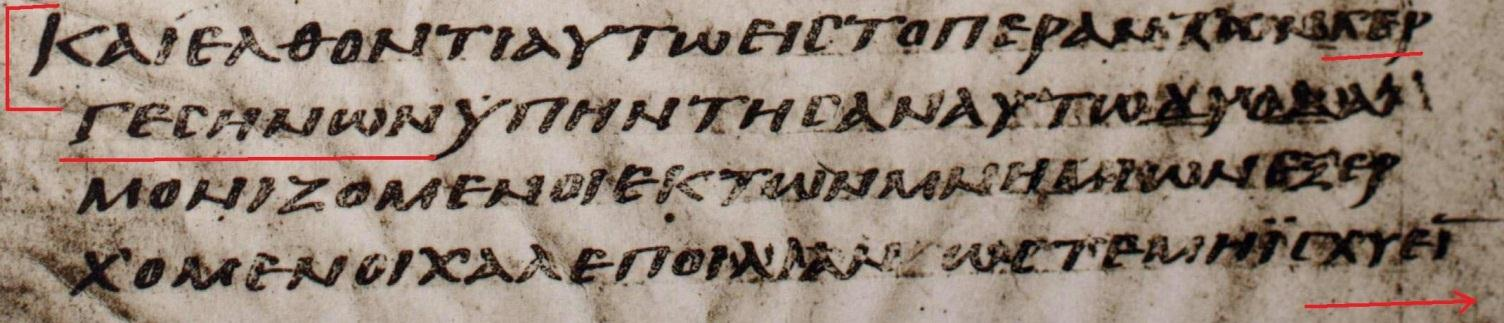 ΚΑΙΕΛΘΟΝΤΙΑΥΤΩΕΙϹΤΟΠΕΡΑΝΤΩΝΓΕΡ
ΓΕϹΗΝΩΝΫΠΗΝΤΗϹΑΝΑΥΤΩΔΥΟΔΑΙ
ΜΟΝΙΖΟΜΕΝΟΙΕΚΤΩΝΜΝΗΜΙΩΝΕΞΕΡ
ΧΟΜΕΝΟΙΧΑΛΕΠΟΙΛΙΑΝΩϹΤΕΜΗΪϹΧΥΕΙ̅